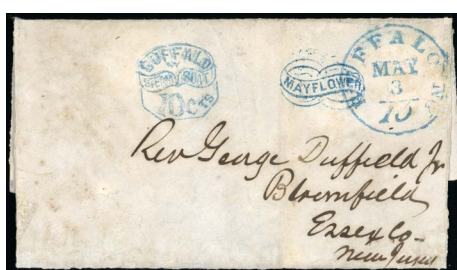 BUFFALO
BY
STEAM BOAT
10 cts
MAYFLOWER
BUFFALO N.Y.
MAY
3
10
Rev George Duffield Jr
Bloomfield
Essex Co-
New Jersey